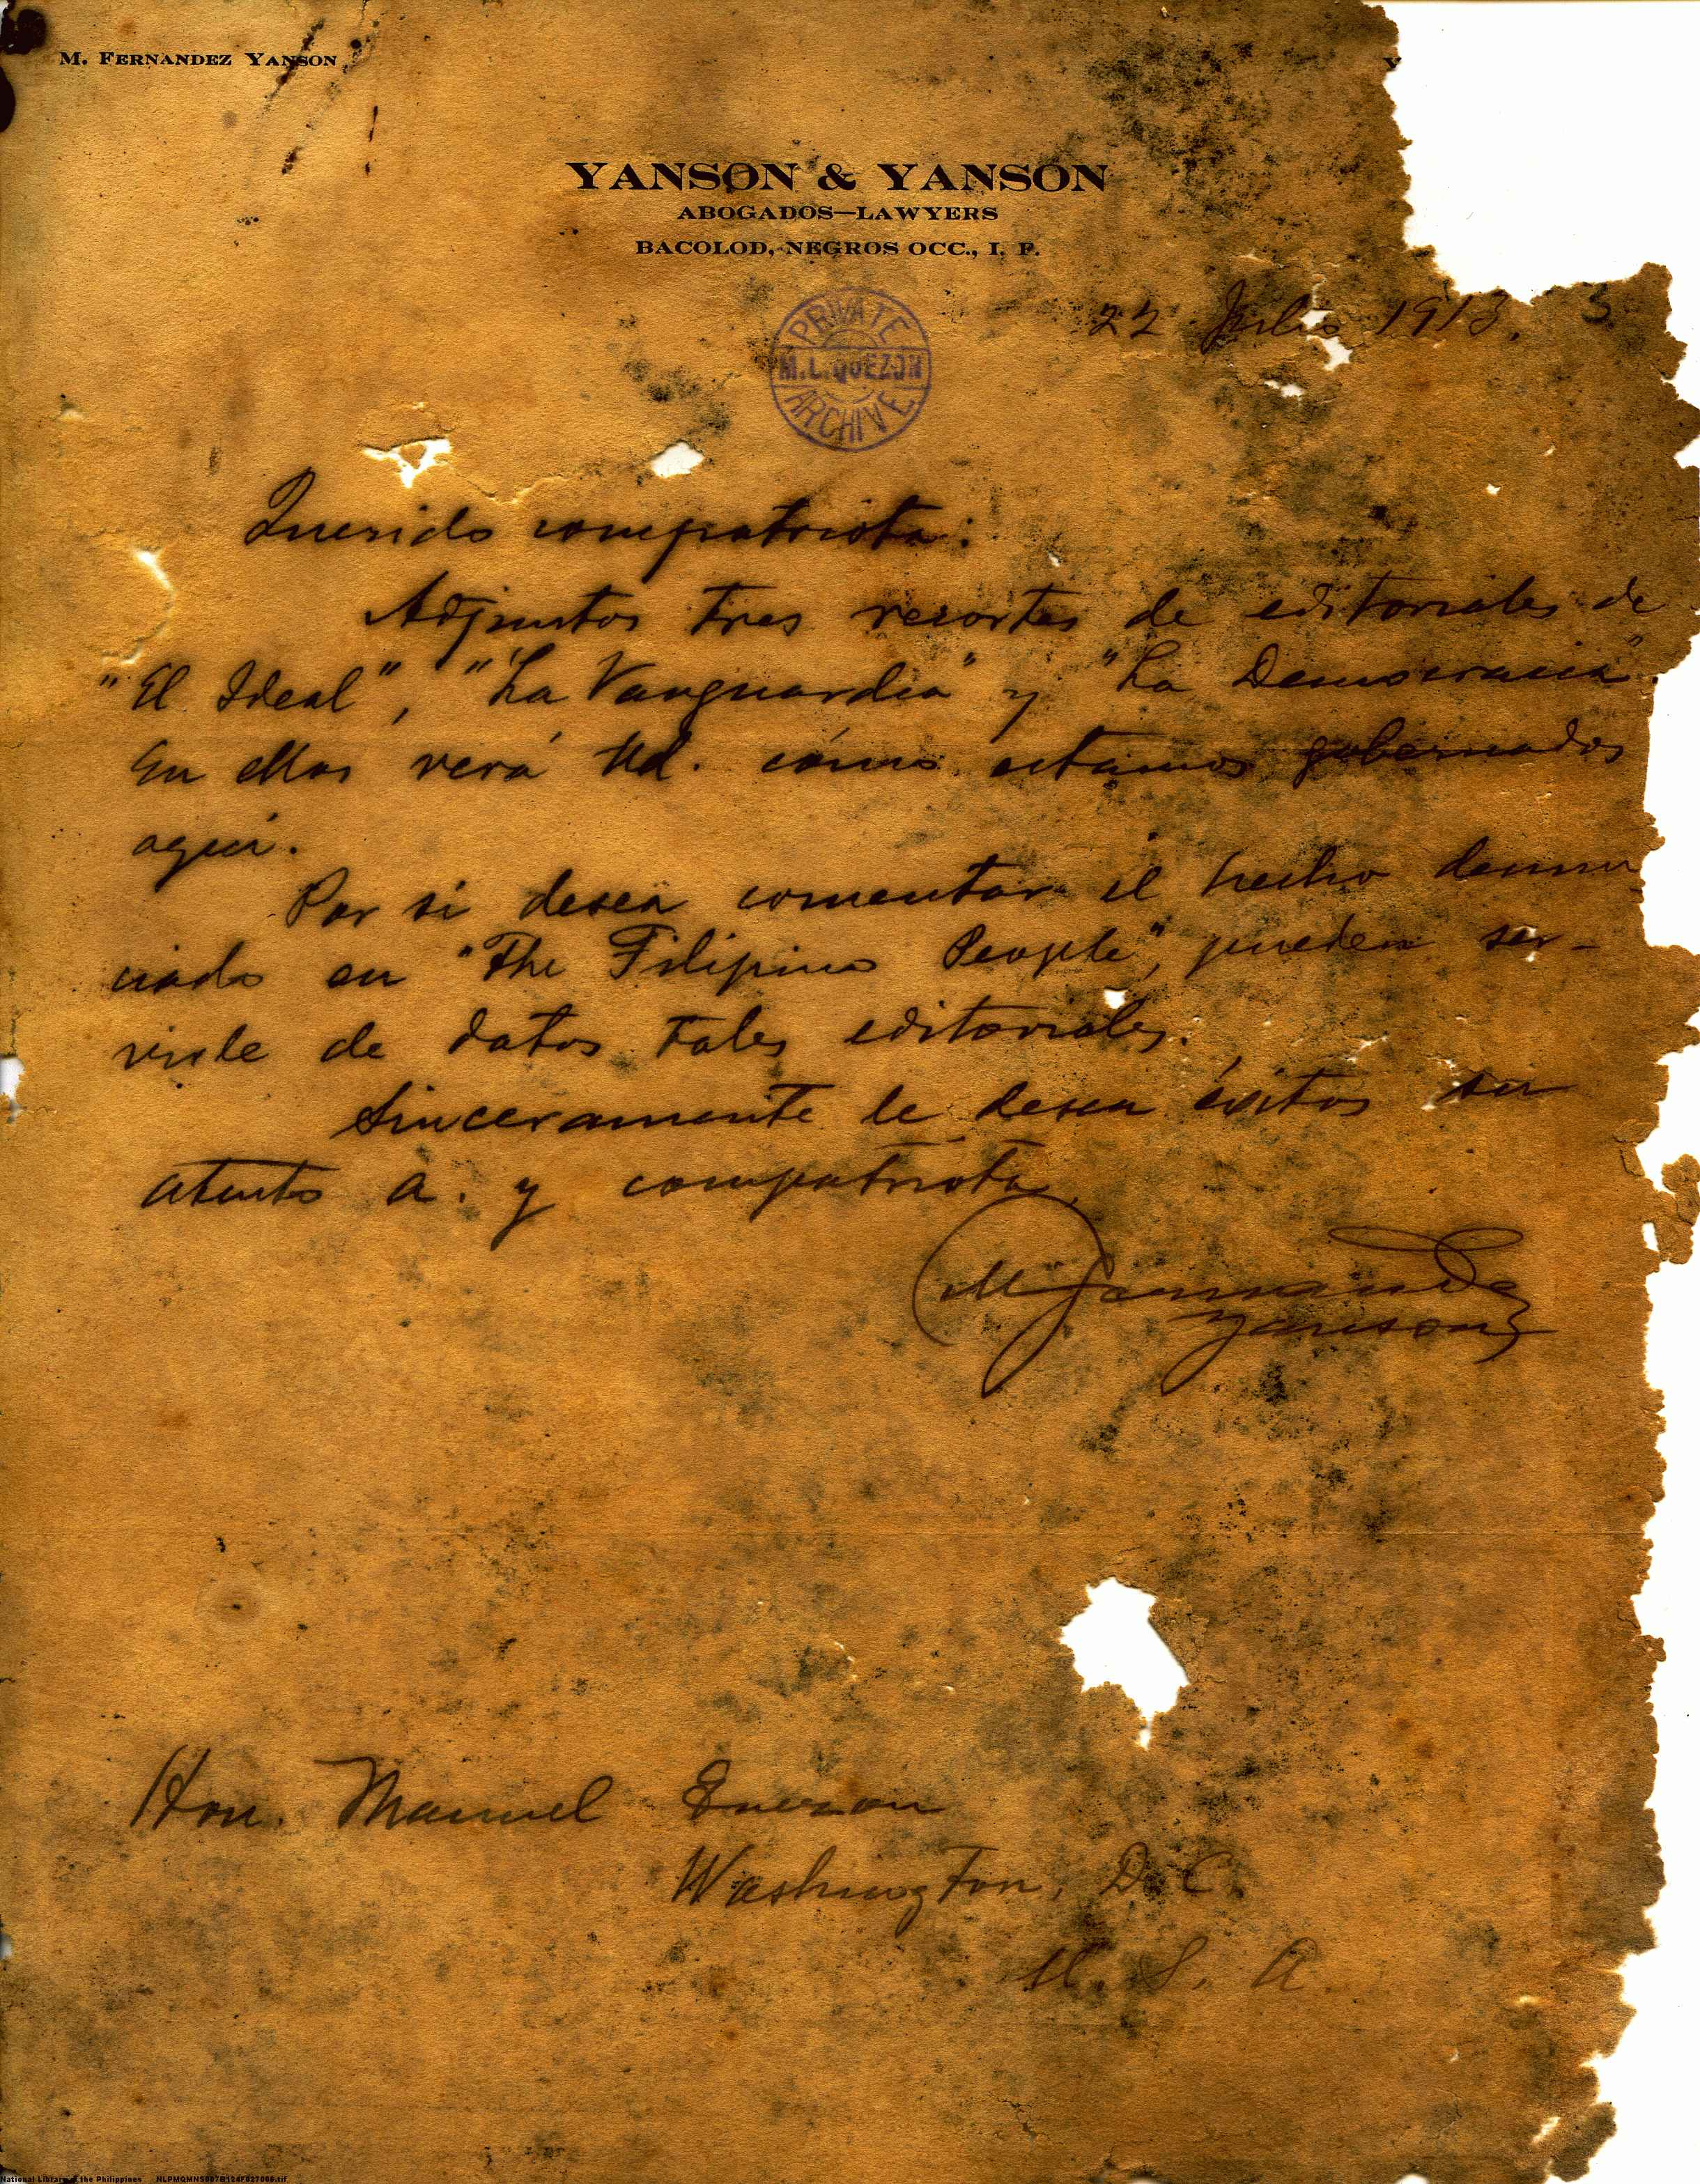 M. FERNANDEZ YANSON
Y
YANSON & YANSON
ABOGADOS—LAWYERS
BACOLOD, NEGROS OCC., I. P.
22 Julio 1913.
PRIVATE
M. L. QUEZON
ARCHIVE
Querido compatriota:
Adjuntos tres recortes de editoriales de
"El Ideal", "La Vanguardia" y "La Democracia".
En ellos verá Ud. cómo estamos gobernados
aquí.
Por si desea comentar el hecho denun
ciado en "The Filipino People", pueden ser-
virle de datos tales editoriales.
Sinceramente le desea éxitos su
atento a. y compatriota,
M Fernandez
Yanson
Hon. Manuel Quezon
Washington, D. C.
U. S. A.
National Library of the Philippines